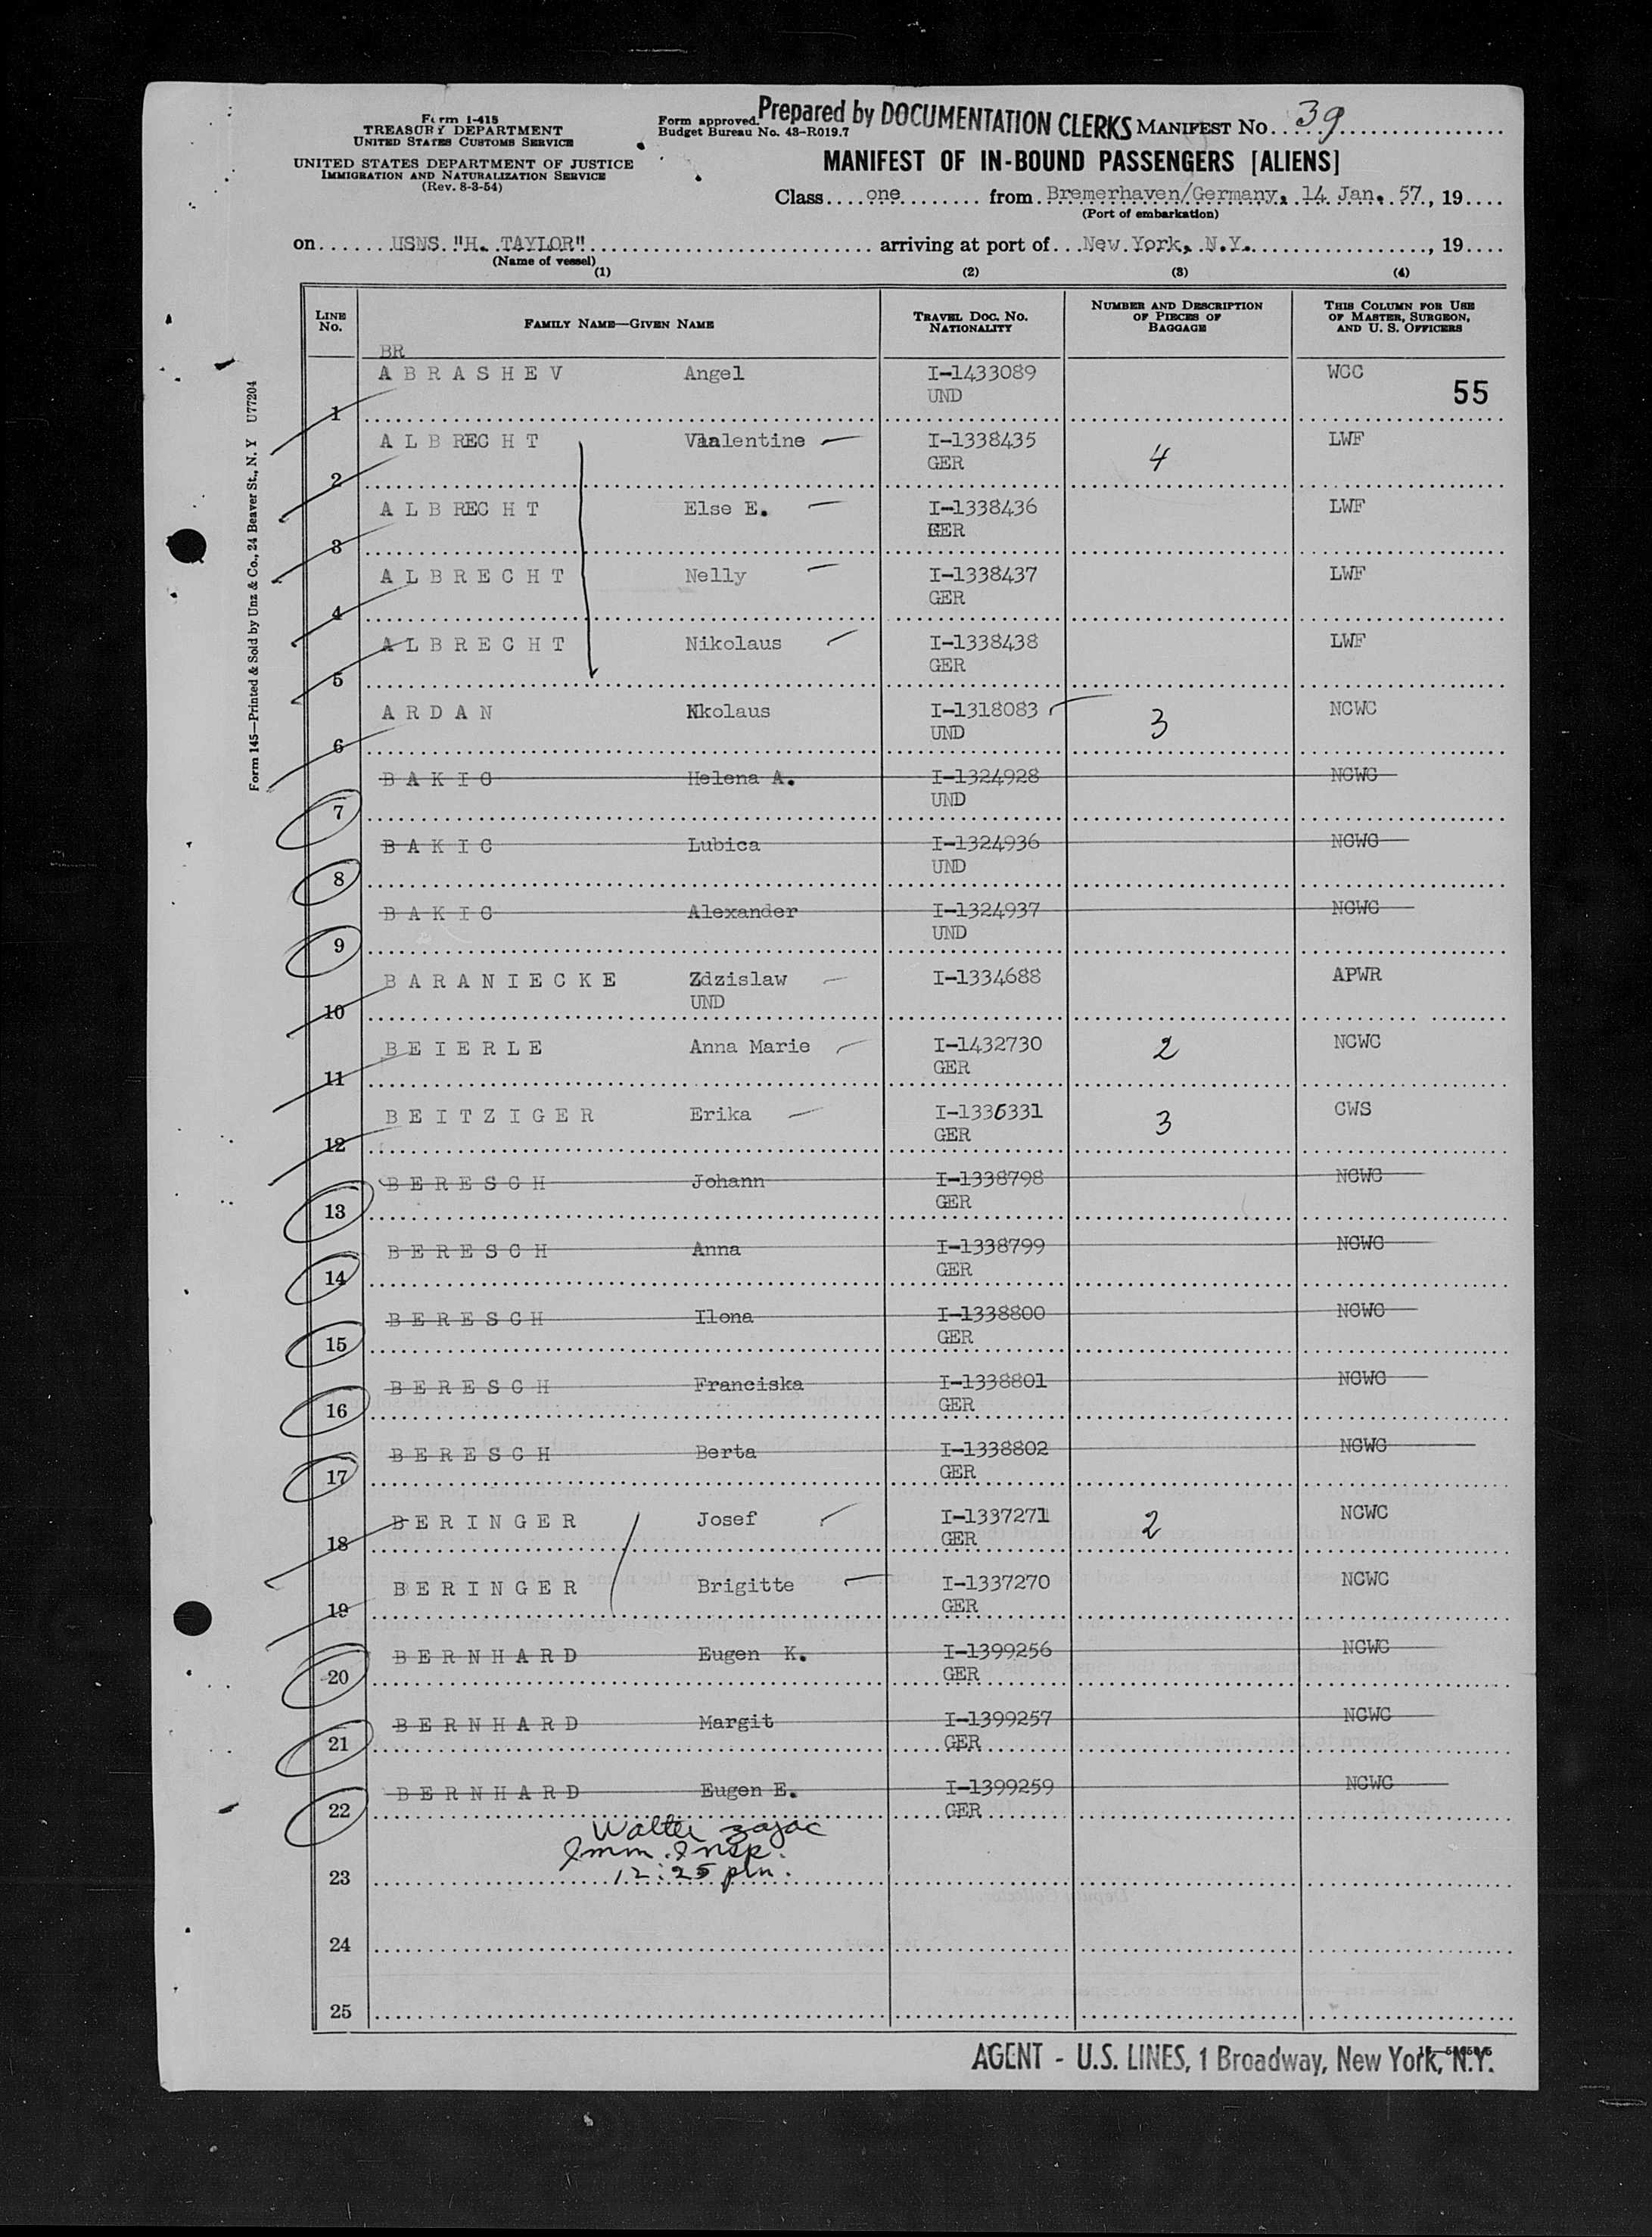 Form I-415
TREASURY DEPARTMENT
UNITED STATES CUSTOMS SERVICE
UNITED STATES DEPARTMENT OF JUSTICE
IMMIGRATION AND NATURALIZATION SERVICE
(Rev. 8-3-54)
Form approved.
Budget Bureau No. 43-R019.7
Prepared by DOCUMENTATION CLERKS MANIFEST No. 39
MANIFEST OF IN-BOUND PASSENGERS [ALIENS]
Class one from Bremerhaven/Germany, 14 Jan. 57, 19
(Port of embarkation)
on USNS "H. TAYLOR" arriving at port of New York, N.Y. , 19
(Name of vessel)
(1) (2) (3) (4)
LINE No. FAMILY NAME—GIVEN NAME TRAVEL DOC. NO. NATIONALITY NUMBER AND DESCRIPTION OF PIECES OF BAGGAGE THIS COLUMN FOR USE OF MASTER, SURGEON, AND U. S. OFFICERS
BR
1 ABRASHEV Angel I-1433089 WCC 55
UND
2 ALBRECHT Valentine I-1338435 4 LWF
GER
3 ALBRECHT Else E. I-1338436 LWF
GER
4 ALBRECHT Nelly I-1338437 LWF
GER
5 ALBRECHT Nikolaus I-1338438 LWF
GER
6 ARDAN Nkolaus I-1318083 3 NCWC
UND
7 BAKIC Helena A. I-1324928 NCWC
UND
8 BAKIC Lubica I-1324936 NCWC
UND
9 BAKIC Alexander I-1324937 NCWC
UND
10 BARANIECKE Zdzislaw I-1334688 APWR
UND
11 BEIERLE Anna Marie I-1432730 2 NCWC
GER
12 BEITZIGER Erika I-1336331 3 CWS
GER
13 BERESCH Johann I-1338798 NCWC
GER
14 BERESCH Anna I-1338799 NCWC
GER
15 BERESCH Ilona I-1338800 NCWC
GER
16 BERESCH Franciska I-1338801 NCWC
GER
17 BERESCH Berta I-1338802 NCWC
GER
18 BERINGER Josef I-1337271 2 NCWC
GER
19 BERINGER Brigitte I-1337270 NCWC
GER
20 BERNHARD Eugen K. I-1399256 NCWC
GER
21 BERNHARD Margit I-1399257 NCWC
GER
22 BERNHARD Eugen E. I-1399259 NCWC
GER
Walter Zajac
Imm. Insp.
23 12:25 pm.
24
25
AGENT - U.S. LINES, 1 Broadway, New York, N.Y.
Form 145—Printed & Sold by Unz & Co., 24 Beaver St., N. Y U77204